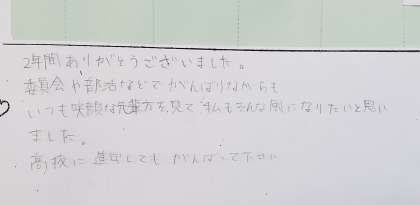 2年間ありがとうございました。
委員会や部活などでがんばりながらも
いつも笑顔な先輩方を見て私もそんな風になりたいと思い
ました。
高校に進学してもがんばって下さい